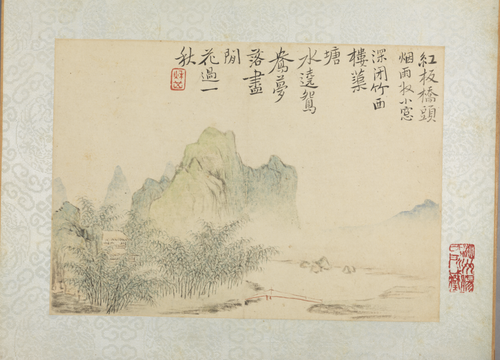 紅板橋頭
烟雨收小窓
深閉竹西
樓
塘
水遠鴛
鴦夢
落盡
閒
花過一
秋